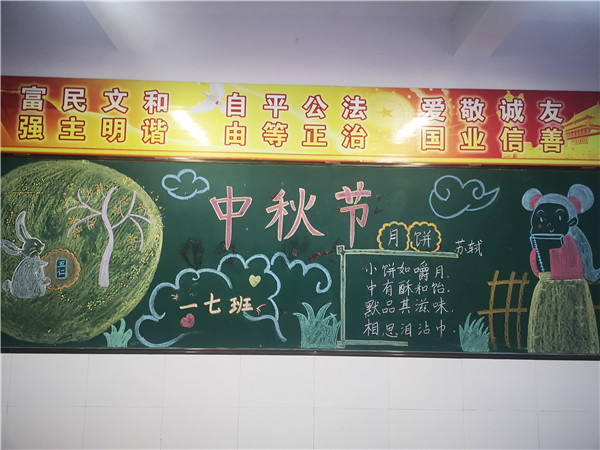 富民文和 自平公法 爱敬诚友
强主明谐 由等正治 国业信善
中秋节
五仁
一七班
月饼
苏轼
小饼如嚼月.
中有酥和饴.
默品其滋味.
相思泪沾巾.